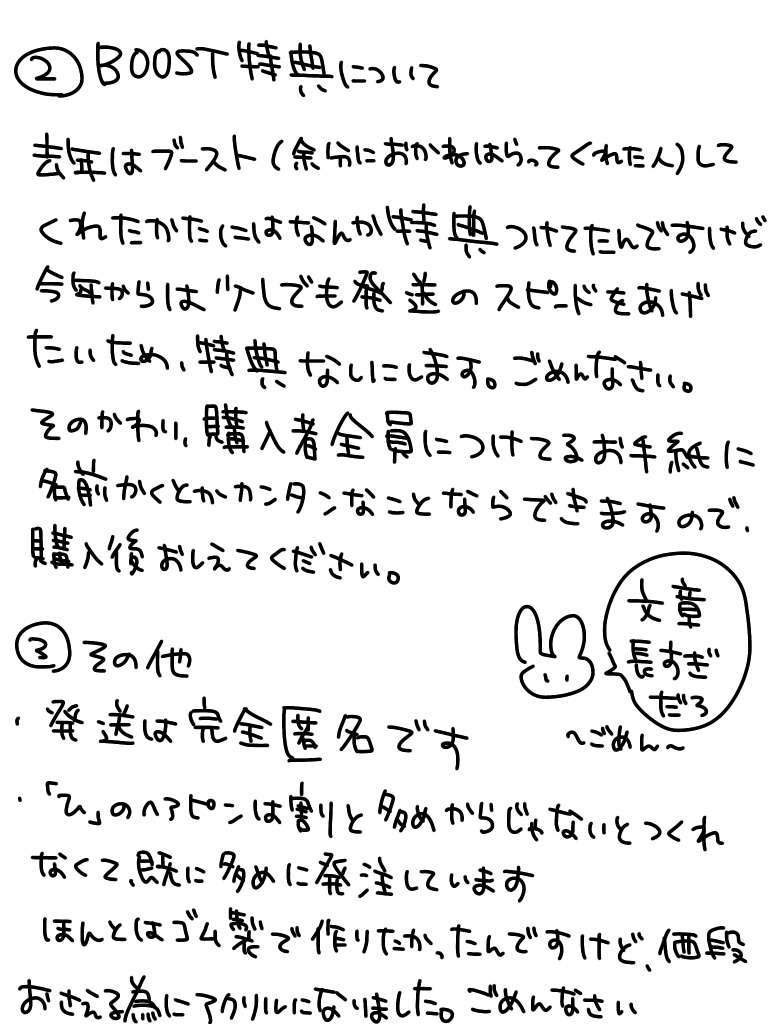 ② BOOST特典について
去年はブースト(余分におかねはらってくれた人)して
くれたかたにはなんか特典つけてたんですけど
今年からは少しでも発送のスピードをあげ
たいため、特典ないにします。ごめんなさい。
そのかわり、購入者全員につけてるお手紙に
名前かくとかカンタンなことならできますので、
購入後おしえてください。
文章
長すぎ
だろ
~ごめん~
③ その他
・発送は完全匿名です
・「ひ」のヘアピンは割りと多めからじゃないとつくれ
なくて、既に多めに発注しています
ほんとはゴム製で作りたかったんですけど、価段
おさえる為にアクリルになりました。ごめんなさい